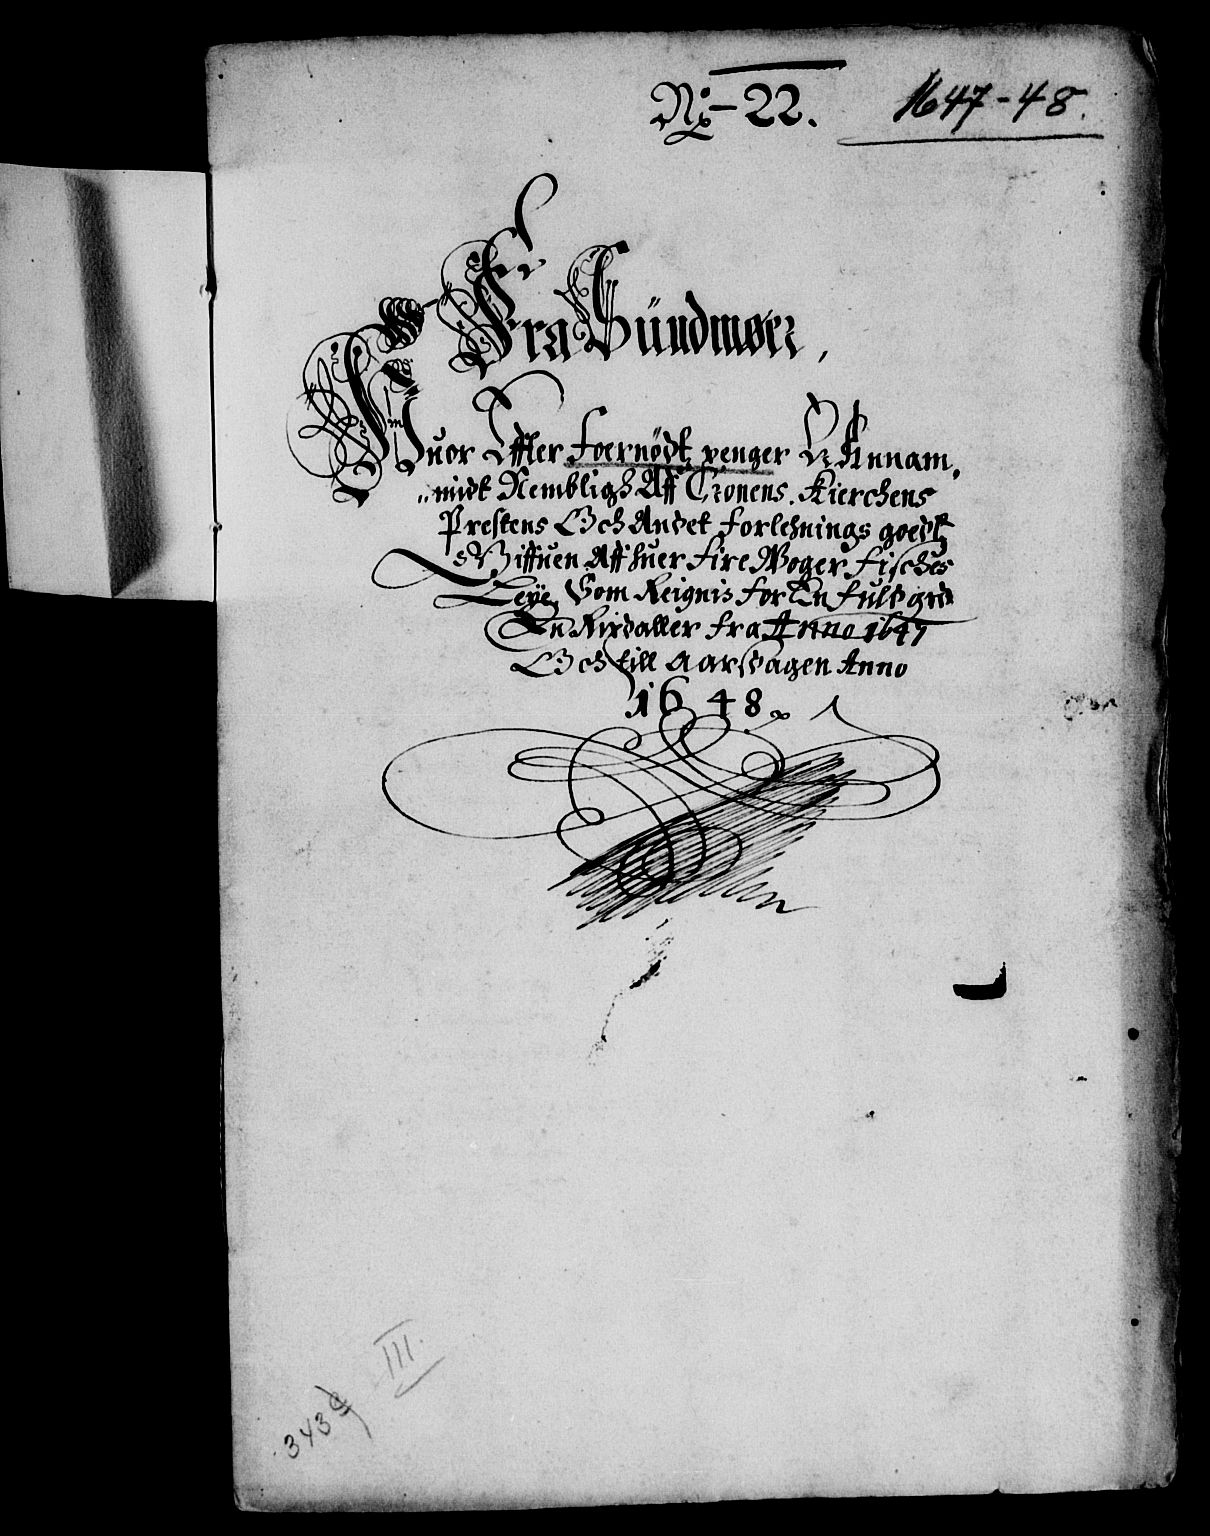 No - 22. 1647-48.
Fra Sündmøer,
Huor Effter Foernødt penger Er Annam,
,,midt Nembligh Aff Cronens. Kierchens
Prestens Och Andet Forlehnings goedtz
Giffuen Aff huer Fire Woger Fisches
Leye, Som Reignis For En Fuld grd
En Rixdaller Fra Anno 1647
Och till Aarsdagen Anno
1648
III.
343